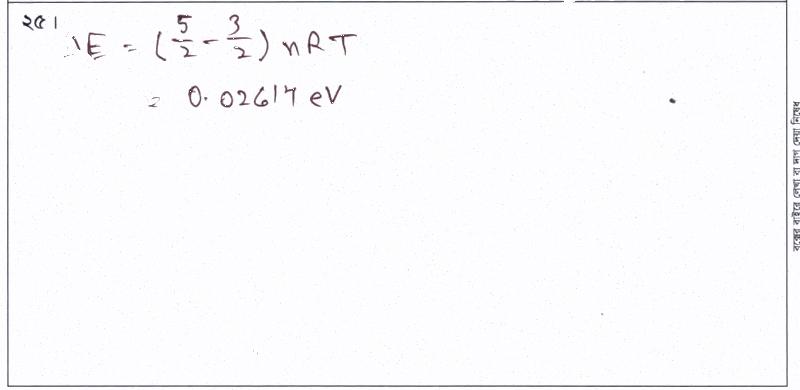 ২৫।
ΔE = (5/2 - 3/2) nRT
= 0.02617 eV
বক্সের বাইরে লেখা বা দাগ দেয়া নিষেধ